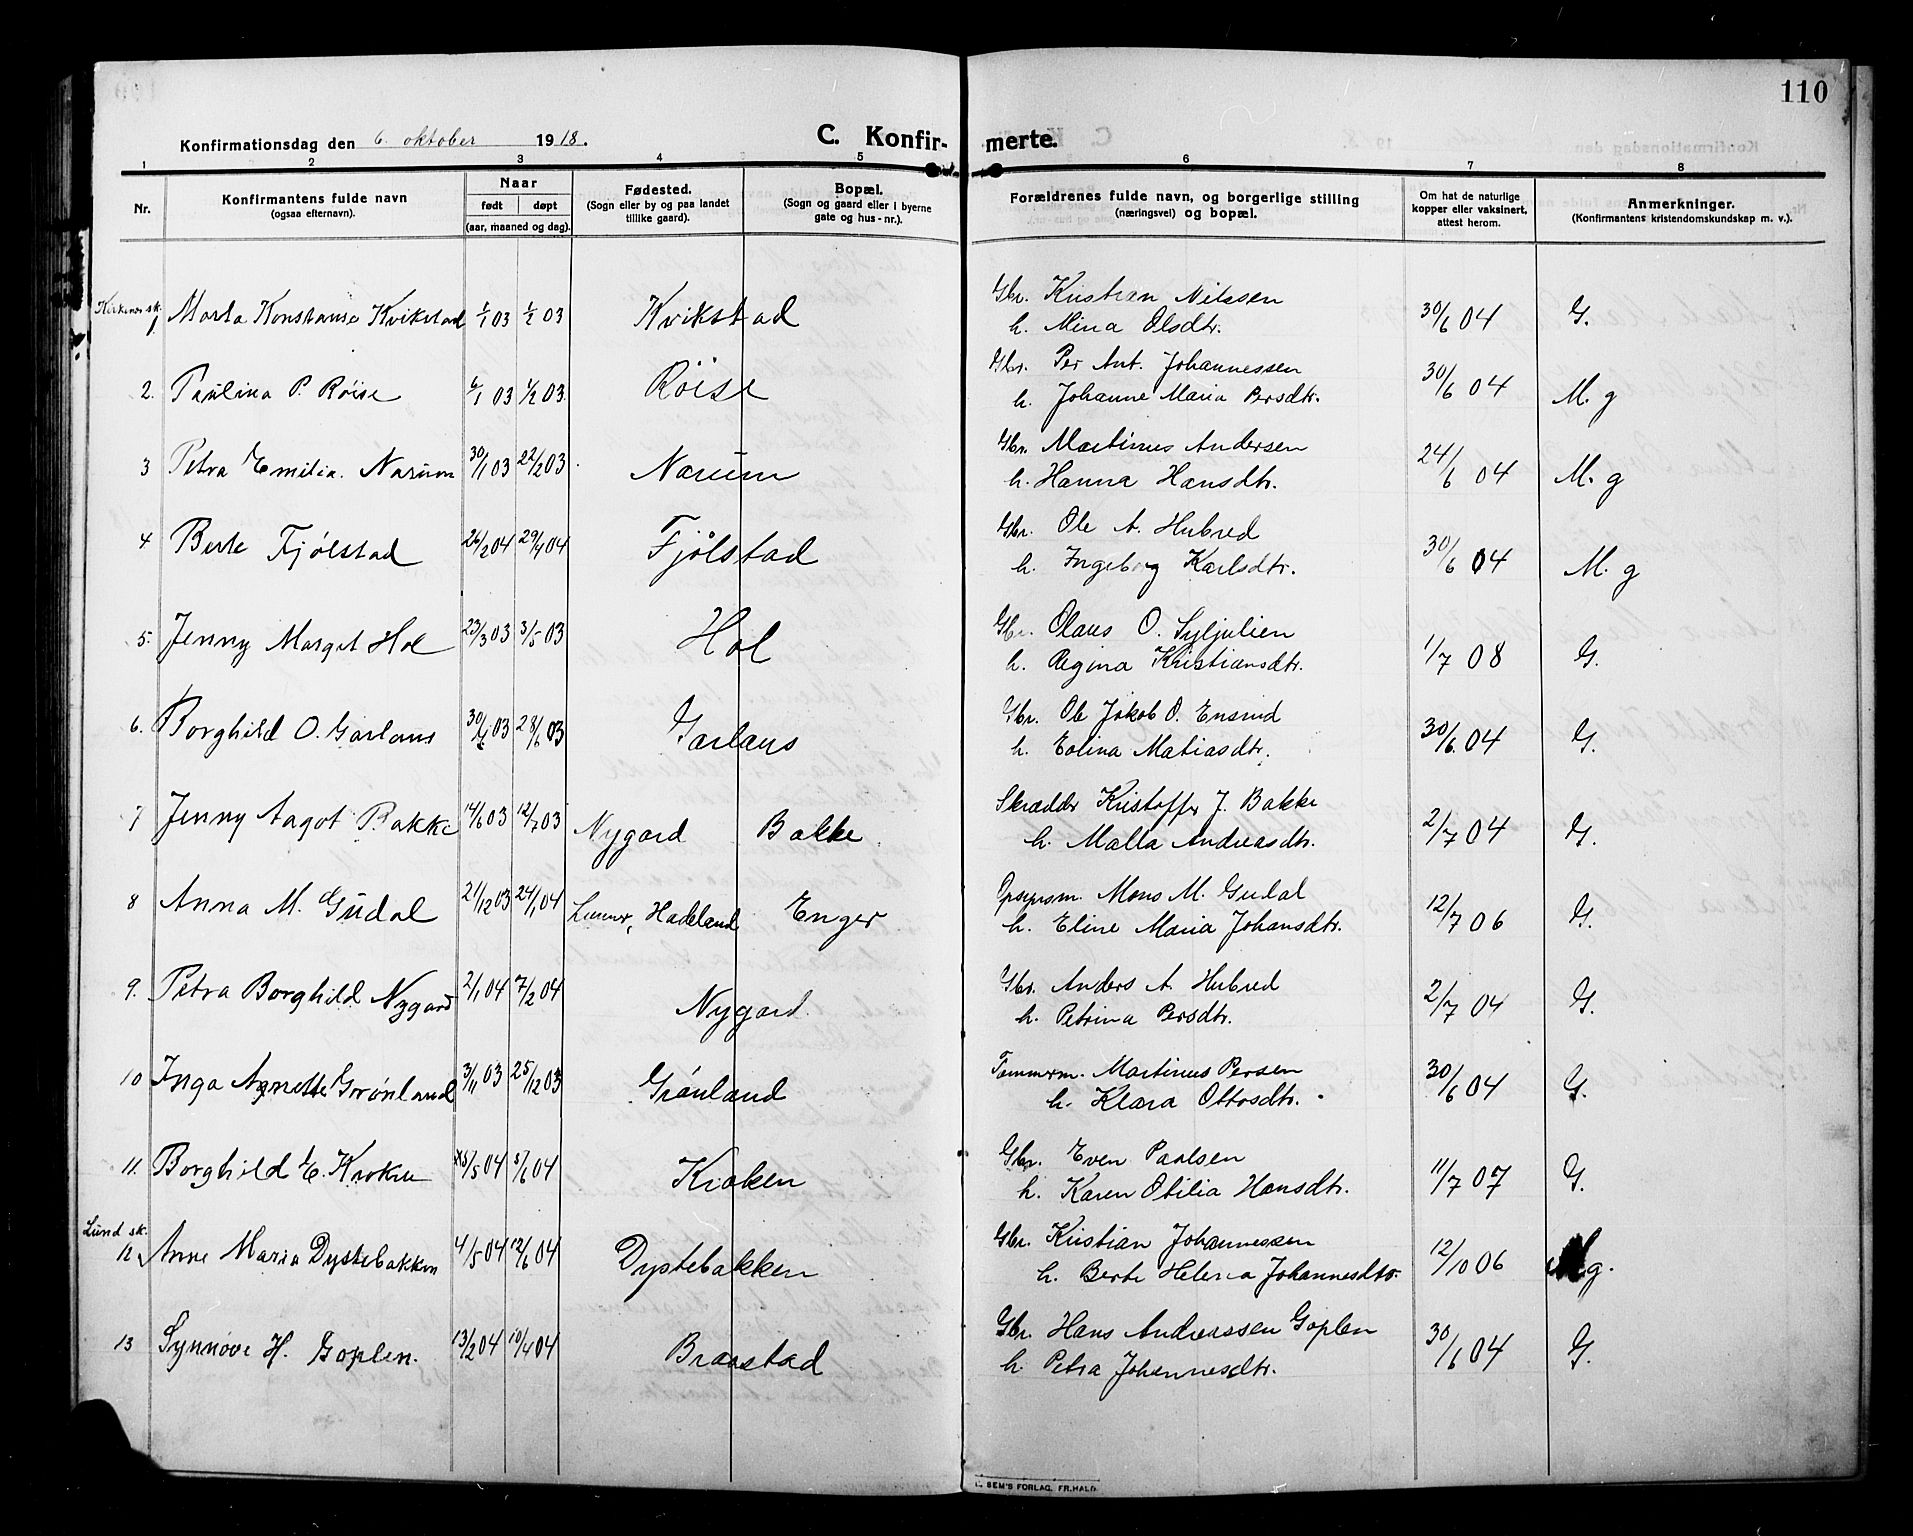 110
Konfirmationsdag den 6. oktober 1918.
C. Konfir-merte.
1 2 3 4 5 6 7 8
Nr.
Konfirmantens fulde navn
(ogsaa efternavn).
Naar
født døpt
(aar, maaned og dag).
Fødested.
(Sogn eller by og paa landet
tillike gaard).
Bopæl.
(Sogn og gaard eller i byerne
gate og hus-nr.).
Forældrenes fulde navn, og borgerlige stilling
(næringsvei) og bopæl.
Om hat de naturlige
kopper eller vaksinert,
attest herom.
Anmerkninger.
(Konfirmantens kristendomskundskap m. v.).
Gbr. Kristian Nilssen
1 Marta Konstanse Kvikstad 1/1 03 1/2 03 Kvikstad 30/6 04 G.
h. Mina Olsdtr.
Gbr. Per Ant. Johannessen
2. Paulina P. Röise 6/1 03 1/2 03 Röise 30/6 04 M. g
h. Johanne Maria Persdtr.
Gbr. Martinus Andersen
3 Petra Emilia. Narum 30/1 03 22/2 03 Narum 24/6 04 M. g
h. Hanna Hansdtr.
Gbr. Ole A. Hubred
4 Berte Fjølstad 26/2 04 29/4 04 Fjølstad 30/6 04 M. g
h. Ingeborg Karlsdtr.
Gbr. Olaus O. Syljulien
5. Jenny Margit Hol 23/3 03 3/5 03 Hol 1/7 08 G.
h. Regina Kristiansdtr.
Gbr. Ole Jakob O. Ensrud
6. Borghild O. Garlaus 30/4 03 28/6 03 Garlaus 30/6. 04 G.
h. Eolina Matiasdtr.
Skrædder Kristoffer J. Bakke
7 Jenny Aagot Bakke 14/6 03 12/7 03 Nygard Bakke 2/7 04 G.
h. Malla Andreasdtr.
Mons M. Gudal
8 Anna M. Gudal 21/12 03 24/1 04 Lunner, Hadeland Enger 12/7 06 G.
h. Eline Maria Johansdtr.
Gbr. Anders A. Hubred
9. Petra Borghild Nygard 2/1 04 7/2 04 Nygard 2/7 04 G.
h. Petrina Persdtr.
Tømmerm. Martinus Persen
10 Inga Agnette Grönland 3/11 03 25/12 03 Grönland 30/6 04 G.
h. Klara Ottosdtr.
Gbr. Even Paulsen
11. Borghild E. Kroken 5/5 04 5/6 04 Kroken 11/7 07 G.
h. Karen Otilia Hansdtr.
Lund sk. Gbr. Kristian Johannessen
12 Anne Maria Dystebakken 4/5 04 12/6 04 Dystebakken 12/10 06 g.
h. Berte Helena Johannesdtr.
Gbr. Hans Andreassen Goplen
13 Synnøve H. Goplen. 13/2 04 10/4 04 Braastad 30/6 04 G.
h. Petra Johannesdtr.
SEM'S FORLAG, FR.HALD